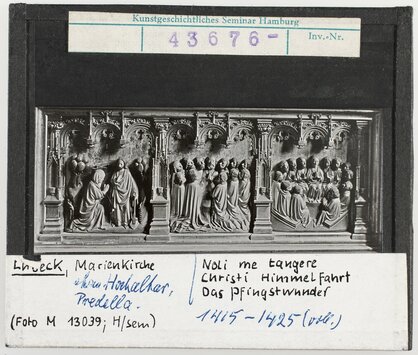 Kunstgeschichtliches Seminar Hamburg
43676- Inv.-Nr.
Lübeck, Marienkirche
ehem. Hochaltar,
Predella.
(Foto M 13039; H/sem)
Noli me tangere
Christi Himmelfahrt
Das Pfingstwunder
1415-1425 (voll.)